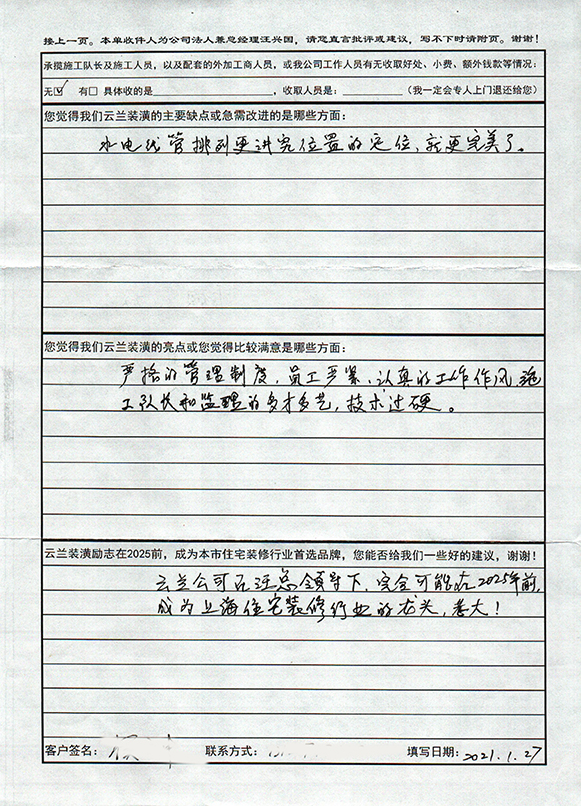 接上一页。本单收件人为公司法人兼总经理汪兴国，请您直言批评或建议，写不下时请附页。谢谢！
承揽施工队长及施工人员，以及配套的外加工商人员，或我公司工作人员有无收取好处、小费、额外钱款等情况：
无☑ 有□ 具体收的是________________，收取人员是：____________（我一定会专人上门退还给您）
您觉得我们云兰装潢的主要缺点或急需改进的是哪些方面：
水电线管排列更讲究位置的定位，就更完美了。
您觉得我们云兰装潢的亮点或您觉得比较满意是哪些方面：
严格的管理制度，员工严紧、认真的工作作风，施
工队长和监理的多才多艺，技术过硬。
云兰装潢励志在2025前，成为本市住宅装修行业首选品牌，您能否给我们一些好的建议，谢谢！
云兰公司在汪总领导下，完全可能在2025年前，
成为上海住宅装修行业的龙头，老大！
客户签名： 联系方式： 填写日期：2021.1.27